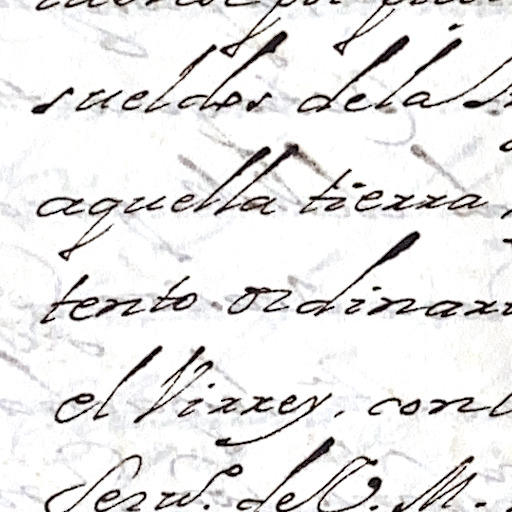 sueldos dela
aquella tierra
tento ordinar
el Virrey, con
Serv.º de V. M.